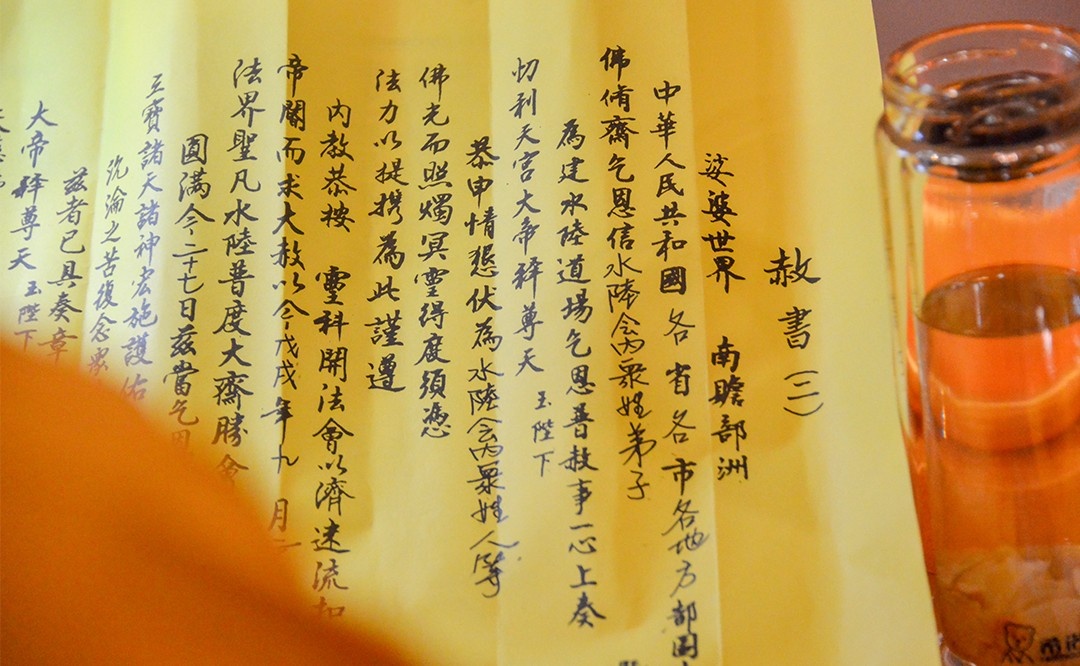 赦書（二）
娑婆世界　南贍部洲
中華人民共和國各省各市各地方部
佛脩齋乞恩信水陸会內眾姓弟子
為建水陸道場乞恩普赦事一心上奏
忉利天宮大帝释尊天　玉陛下
恭申情懇伏為水陸会內眾姓人等
佛光而照燭冥靈得度須憑
法力以提携為此謹遵
內教恭按　靈科開法會以濟迷流
帝闕而求大赦以今戊戌年九月
法界聖凡水陸普度大齋勝會
圓滿今二十七日茲當乞
三寶諸天諸神宏施護佑
沉淪之苦復念
茲者已具奏章
大帝释尊天玉陛下